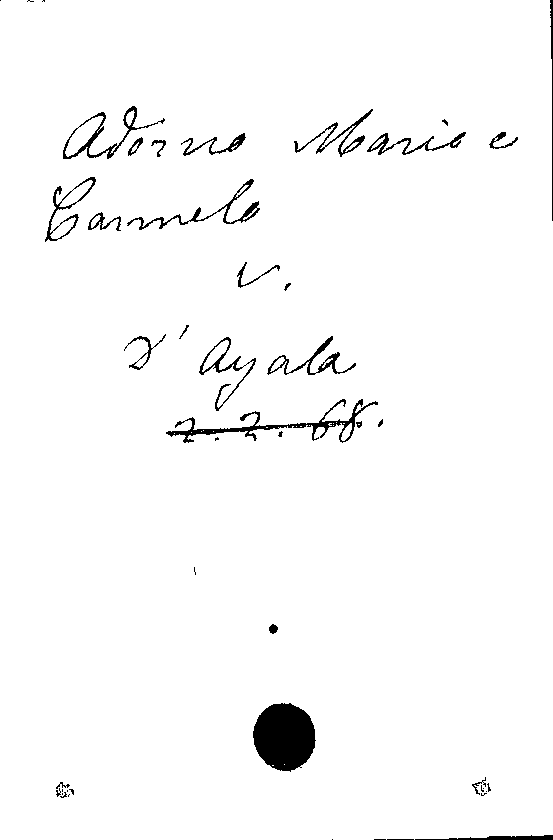 Adorno Mario e
Carmelo
v.
D'Ayala
2.2.68.